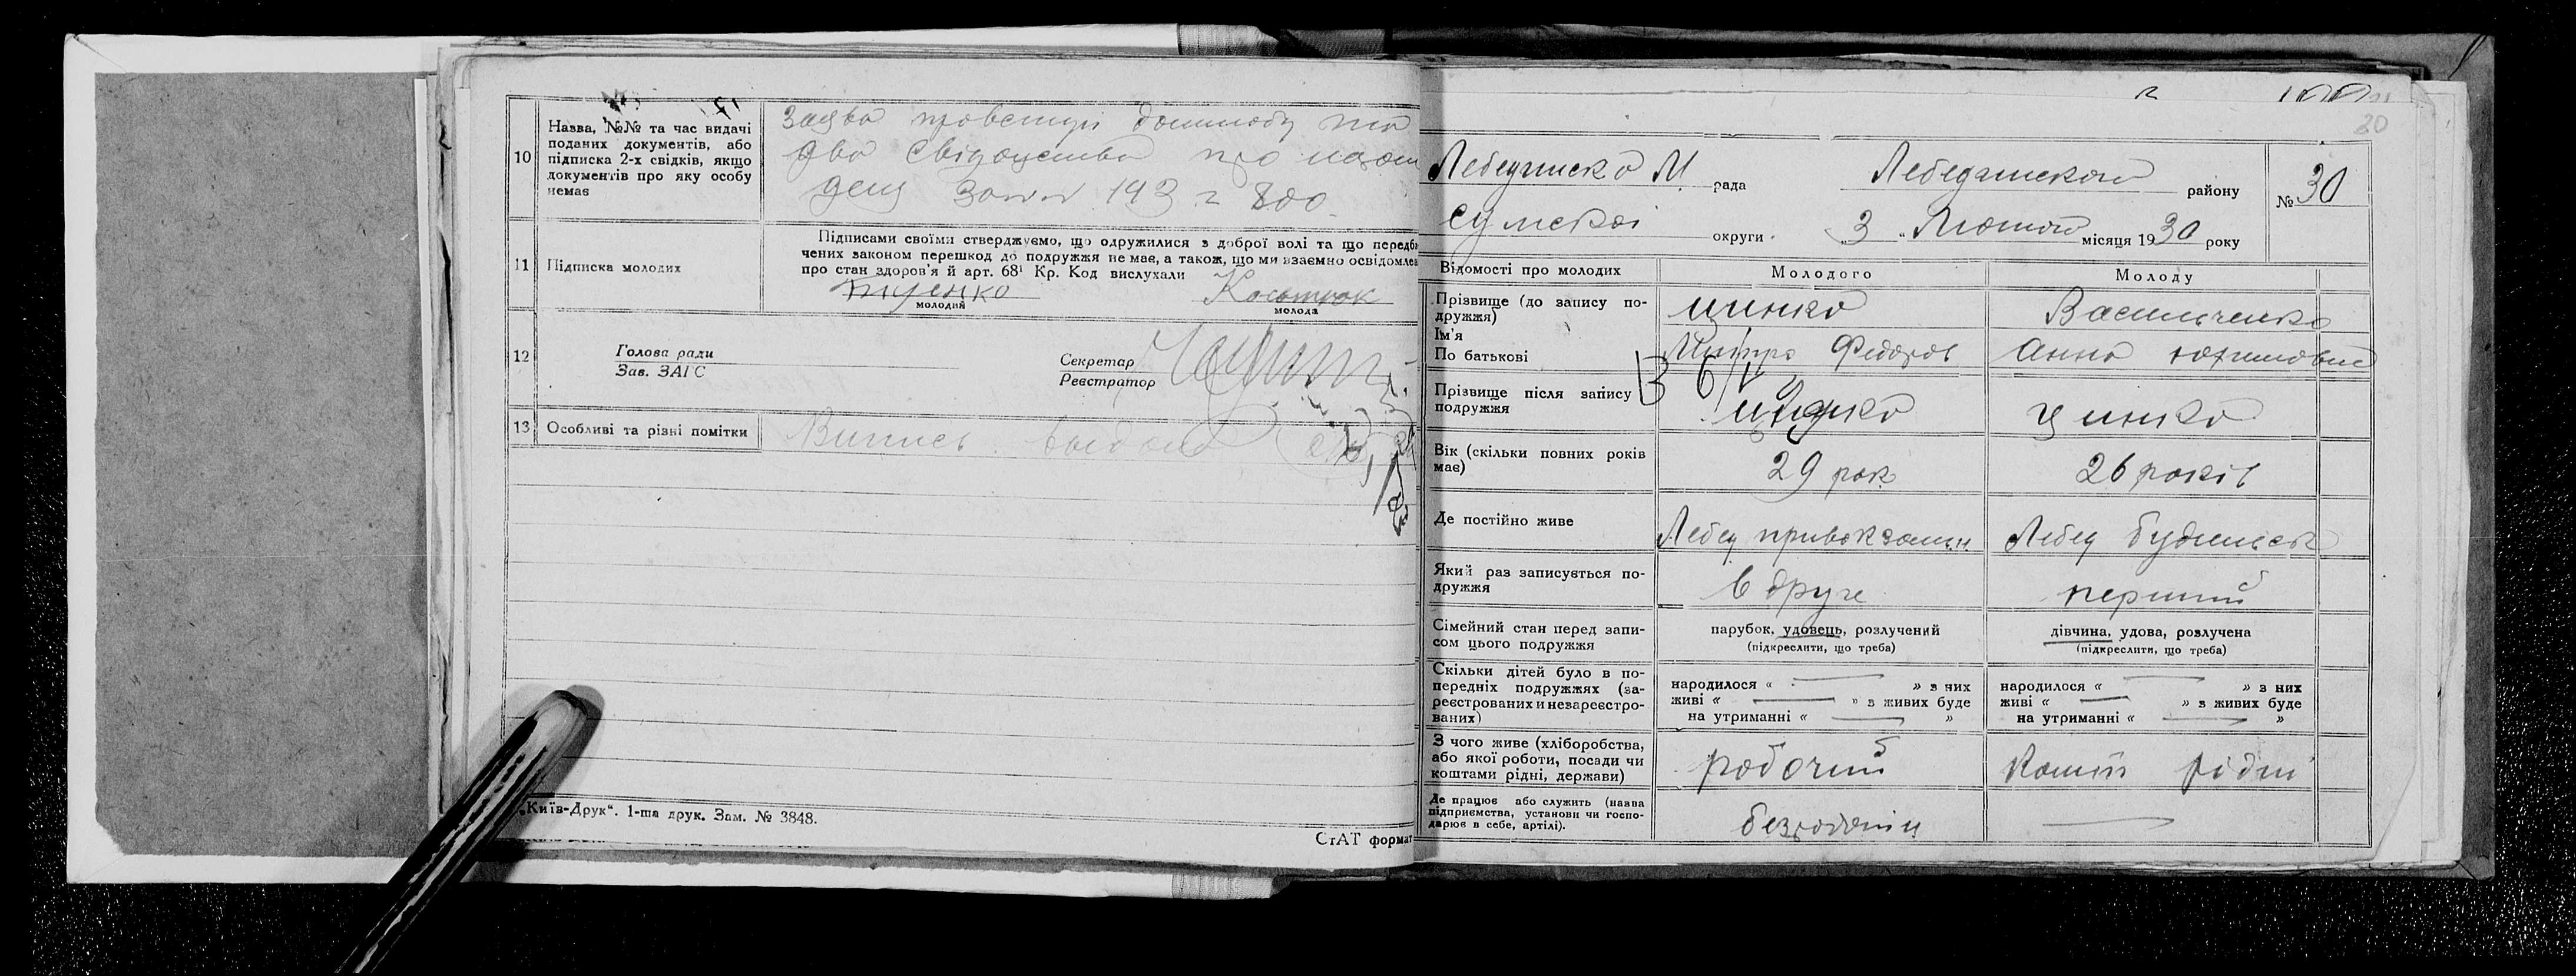 10
Назва, №№ та час видачі
поданих документів, або
підписка 2-х свідків, якщо
документів про яку особу
немає
два про
193 800
11
Підписка молодих
Підписами своїми стверджуємо, що одружилися з доброї волі та що передба
чених законом перешкод до подружжя немає, а також, що ми взаємно освідомлен
про стан здоров'я й арт. 68¹ Кр. Код вислухали
молодий
молода
12
Голова ради
Зав. ЗАГС
Секретар
Реєстратор
13
Особливі та різні помітки
Випись
„Київ-Друк“. 1-ша друк. Зам. № 3848.
СтАТ формат
30
Лебединско М рада
Лебединского району
№ 30
Сумскоі округи
„3„ Лютого місяця 1930 року
Відомості про молодих
Молодого
Молоду
Прізвище (до запису по-
дружжя)
цинко
Васильченко
Ім'я
По батькові
Федоров
Анна Юхимовна
Прізвище після запису
подружжя
цинко
цинко
Вік (скільки повних років
має)
29 рок
26 років
Де постійно живе
Лебед привокзальн
Лебед
Який раз записується по-
дружжя
в друге
перший
Сімейний стан перед запи-
сом цього подружжя
парубок, удовець, розлучений
(підкреслити, що треба)
дівчина, удова, розлучена
(підкреслити, що треба)
Скільки дітей було в по-
передніх подружжях (за-
реєстрованих и незареєстро-
ваних)
народилося « » з них
живі « » з живих буде
на утриманні « »
народилося « » з них
живі « » з живих буде
на утриманні « »
З чого живе (хліборобства,
або якої роботи, посади чи
коштами рідні, держави)
робочий
Кошти рідні
Де працює або служить (назва
підприємства, установи чи госпо-
дарює в себе, артілі).